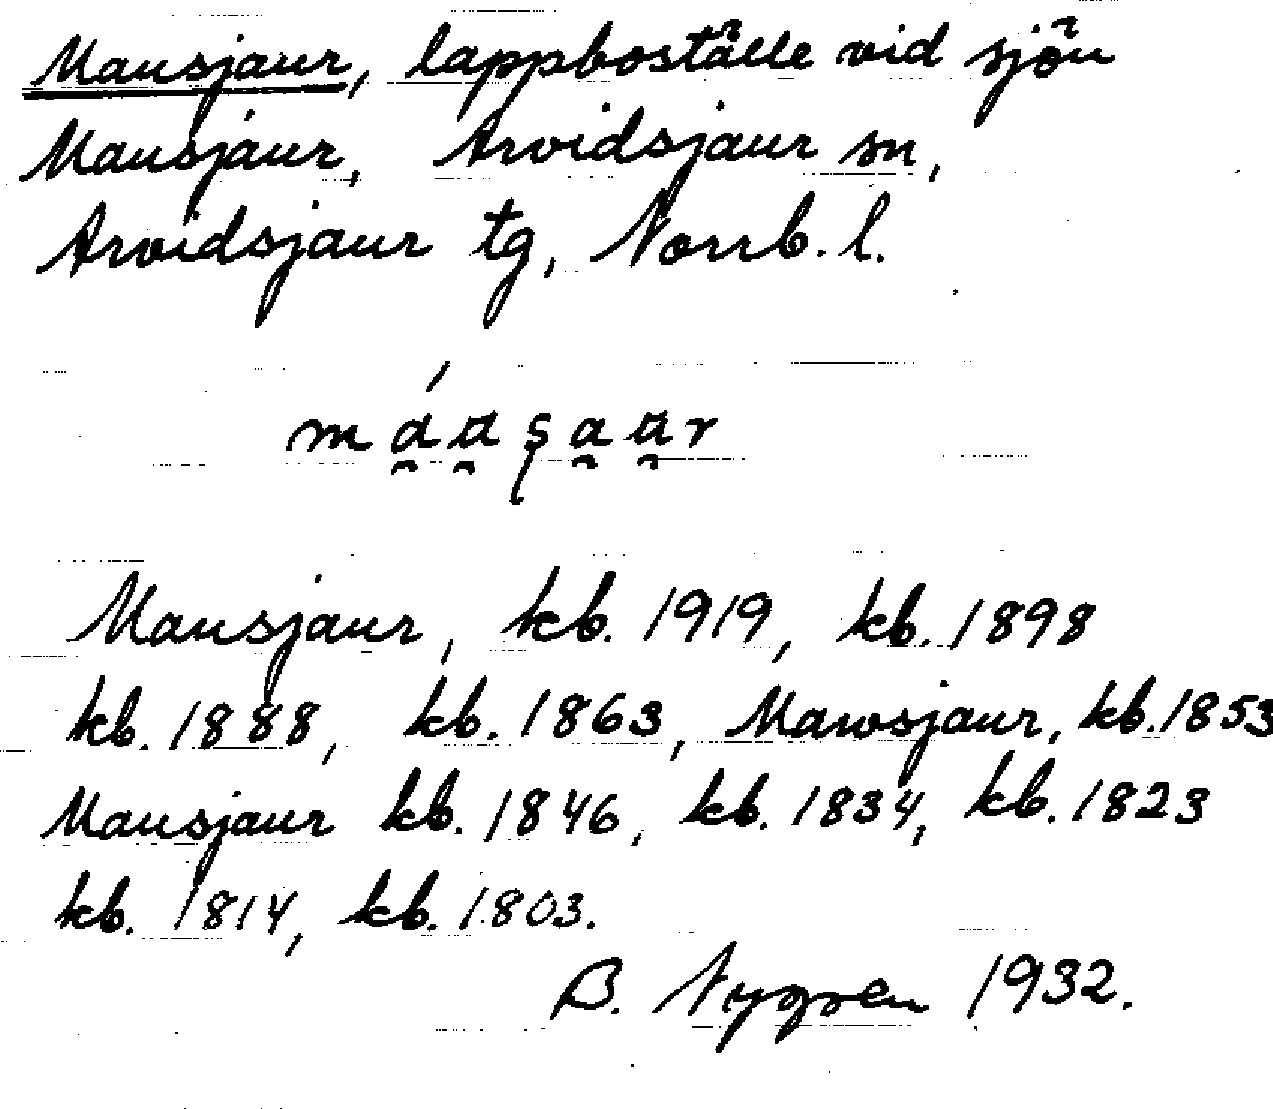 Mausjaur, lappboställe vid sjön
Mausjaur, Arvidsjaur sn,
Arvidsjaur tg, Norrb. l.
Mausjaur, kb. 1919, kb. 1898
kb. 1888, kb. 1863, Mawsjaur, kb. 1853
Mausjaur kb. 1846, kb. 1834, kb. 1823
kb. 1814, kb. 1803.
B. Nygren 1932.